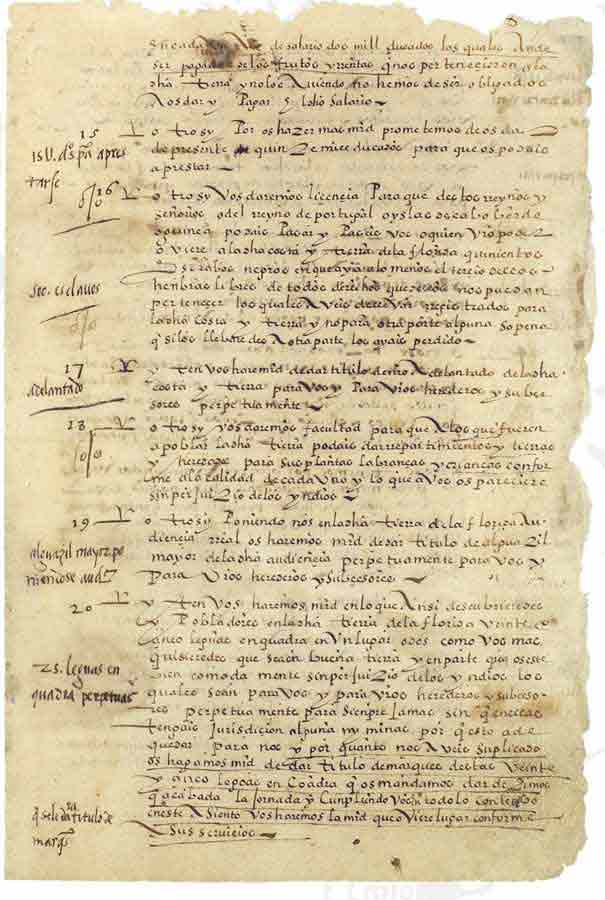 en cada un año de salario dos mill ducados los quales an de
ser pagados de los frutos y rrentas q̃ nos perteneçieren en la
dha tierra y no los aviendo no hemos de ser obligados
a os dar y pagar el dho salario
15 otrosy por os hazer mas mrd prometemos de os dar
de presente quinze mill ducados para que os podais
aprestar
15U. dºs pª apres
tarse
16 otrosy vos daremos liçençia para que destos rreynos y
señorios o del reyno de portugal o yslas de cabo verde
o guinea podais pasar y paseis vos o quien vro poder
oviere a la dha costa y tierra de la florida quinientos
esclavos negros en que aya a lo menos el terçio dellos
henbras libres de todos derechos que dellos nos puedan
perteneçer los quales aveis de llevar registrados para
la dha costa y tierra y no para otra parte alguna so pena
q̃ si los llevaredes a otra parte los ayais perdido
500 esclavos
17 yten vos haremos mrd de dar titulo de nro adelantado de la dha
costa y tierra para vos y para vros herederos y subçe
sores perpetuamente
adelantado
18 otrosy vos daremos facultad para que a los que fueren
a poblar la dha tierra podais dar repartimientos y tierras
y heredades para sus plantas labranças y crianças confor
me a la calidad de cada uno y lo que a vos os pareçiere
sin perjuizio de los yndios
19 otrosy poniendo nos en la dha tierra de la florida au
diençia real os haremos mrd de dar titulo de alguazil
mayor de la dha audiençia perpetuamente para vos y
para vros herederos y subçesores
alguazil mayor po
niendose audª
20 yten vos haremos mrd en lo que ansi descubrieredes
y poblaredes en la dha tierra de la florida veinte y
çinco leguas en quadra en un lugar o dos como vos mas
quisieredes que sea en buena tierra y en parte que os este
bien comodamente sin perjuizio de los yndios los
quales sean para vos y para vros herederos y subçeso
res perpetuamente para sienpre jamas sin q̃ en ellas
tengais jurisdiçion alguna ny minas por q̃ esto a de
quedar para nos y por quanto nos aveis suplicado
os hagamos mrd de dar titulo de marques destas veinte
y çinco leguas en quadra q̃ os mandamos dar dezimos
q̃ acabada la jornada y cunpliendo vos todo lo contenido
en este asiento vos haremos la mrd que oviere lugar conforme
a sus serviçios
25. leguas en
quadra perpetuas
q̃ se le dara titulo de
marqs